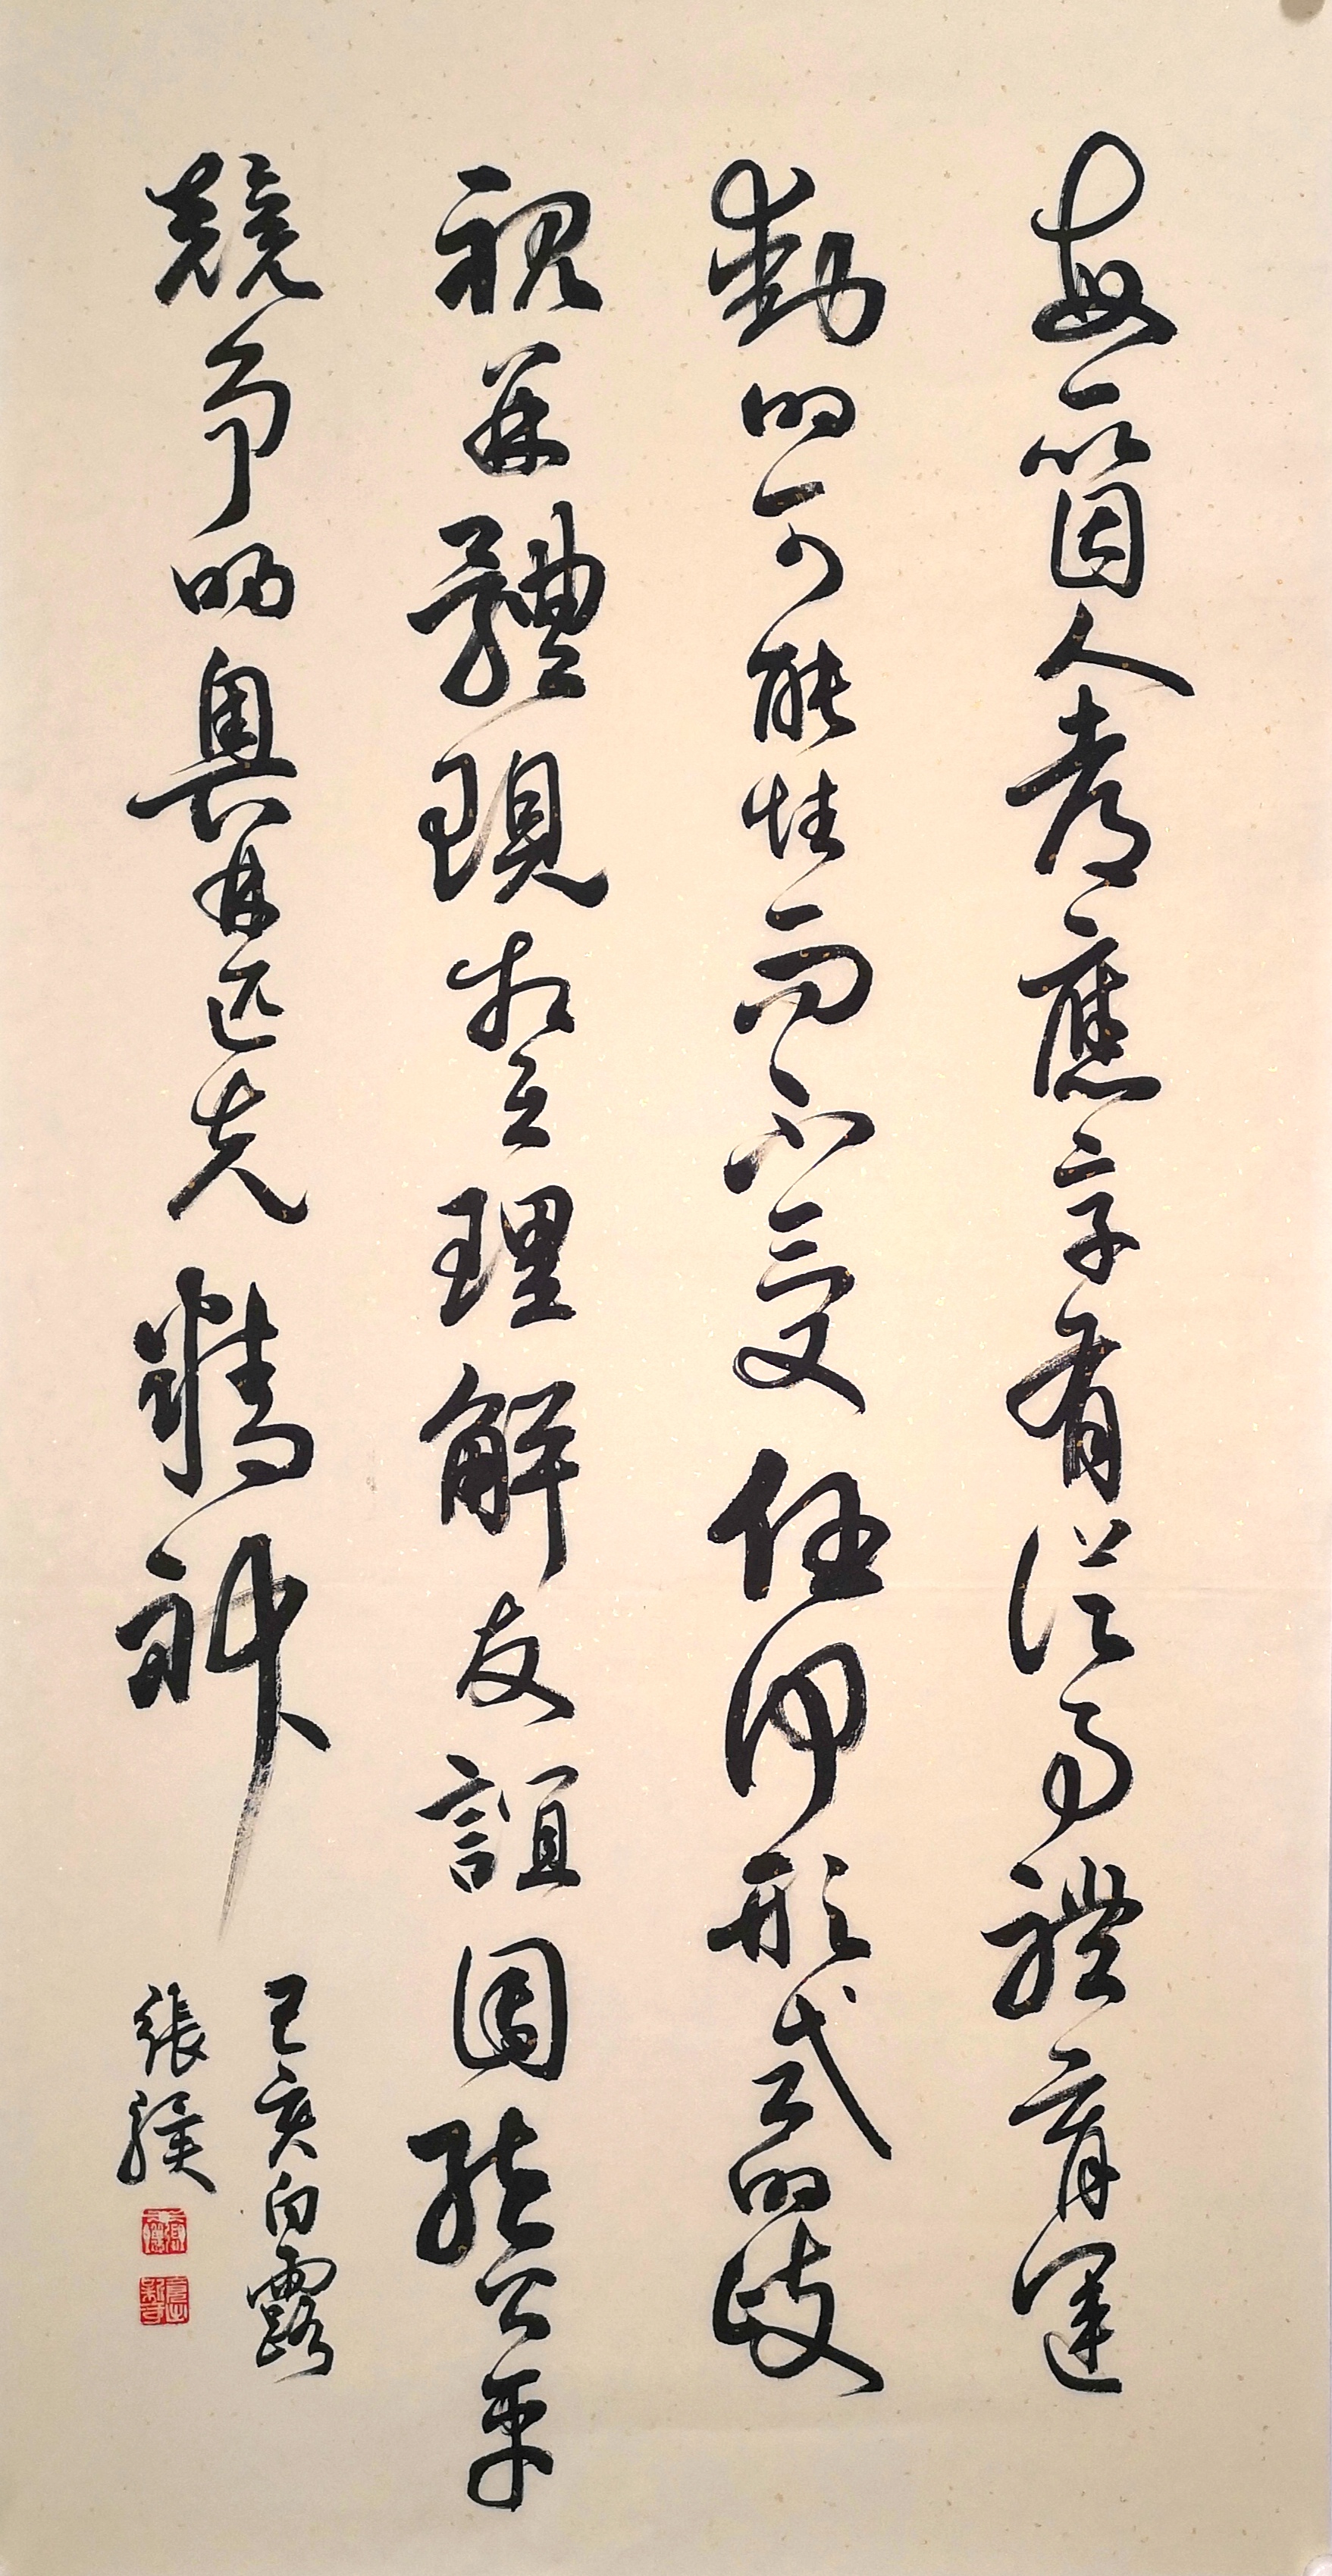 每一箇人都應享有從事體育運
動的可能性而不受任何形式的歧
視并體現相互理解友誼團結公平
競爭的奧林匹克精神
己亥白露
張